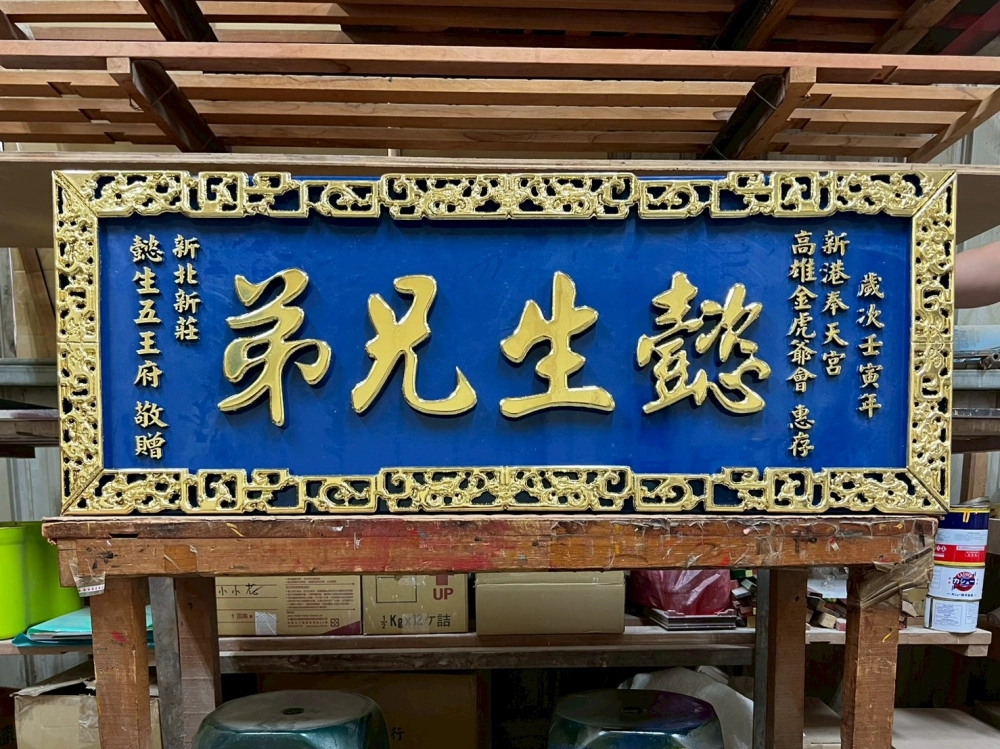 歲次壬寅年
新港奉天宮
高雄金虎爺會 惠存
懿生兄弟
新北新莊
懿生五王府 敬贈
小小老
UP
½Kg×12ケ詰
カシュー
行